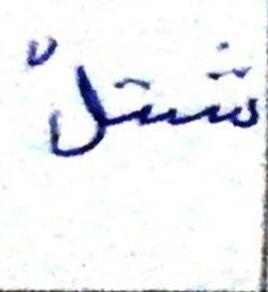 شتلّ